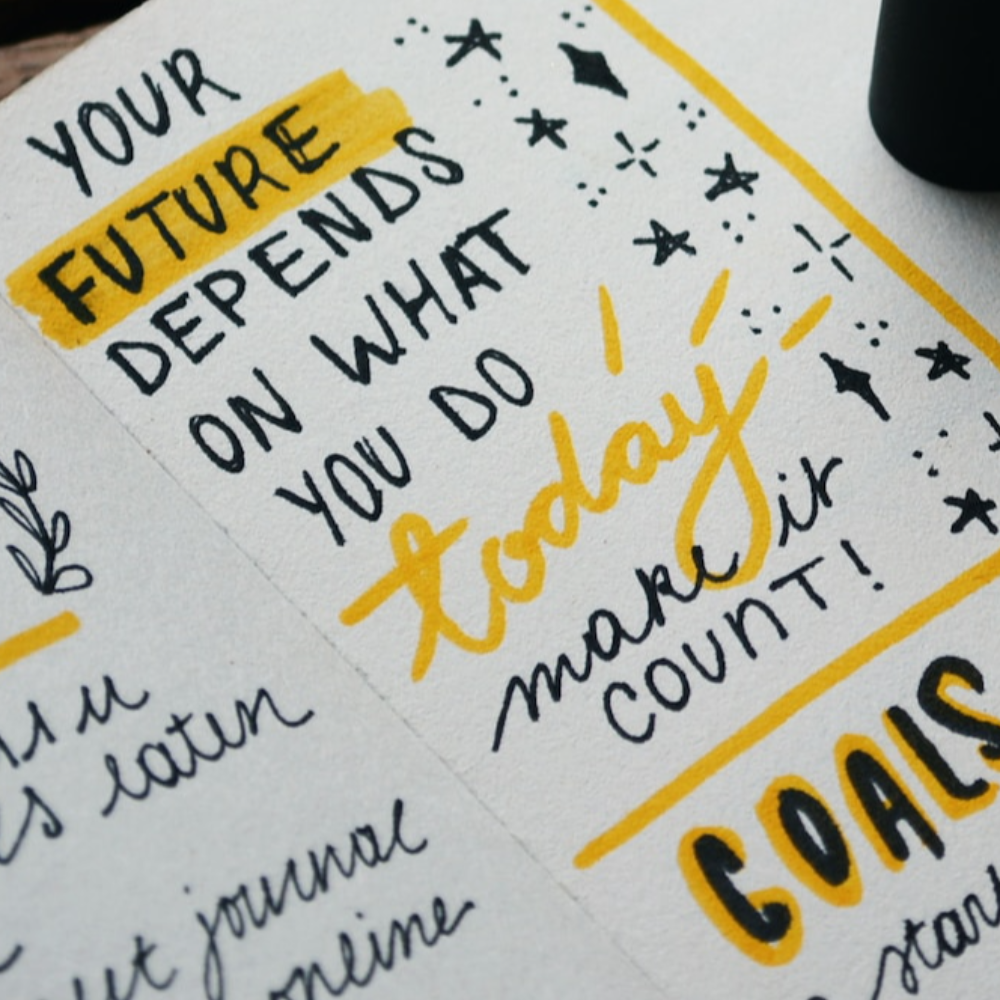 YOUR
FUTURE
DEPENDS
ON WHAT
YOU DO
today
make it
COUNT!
GOALS
eaten
journal
online